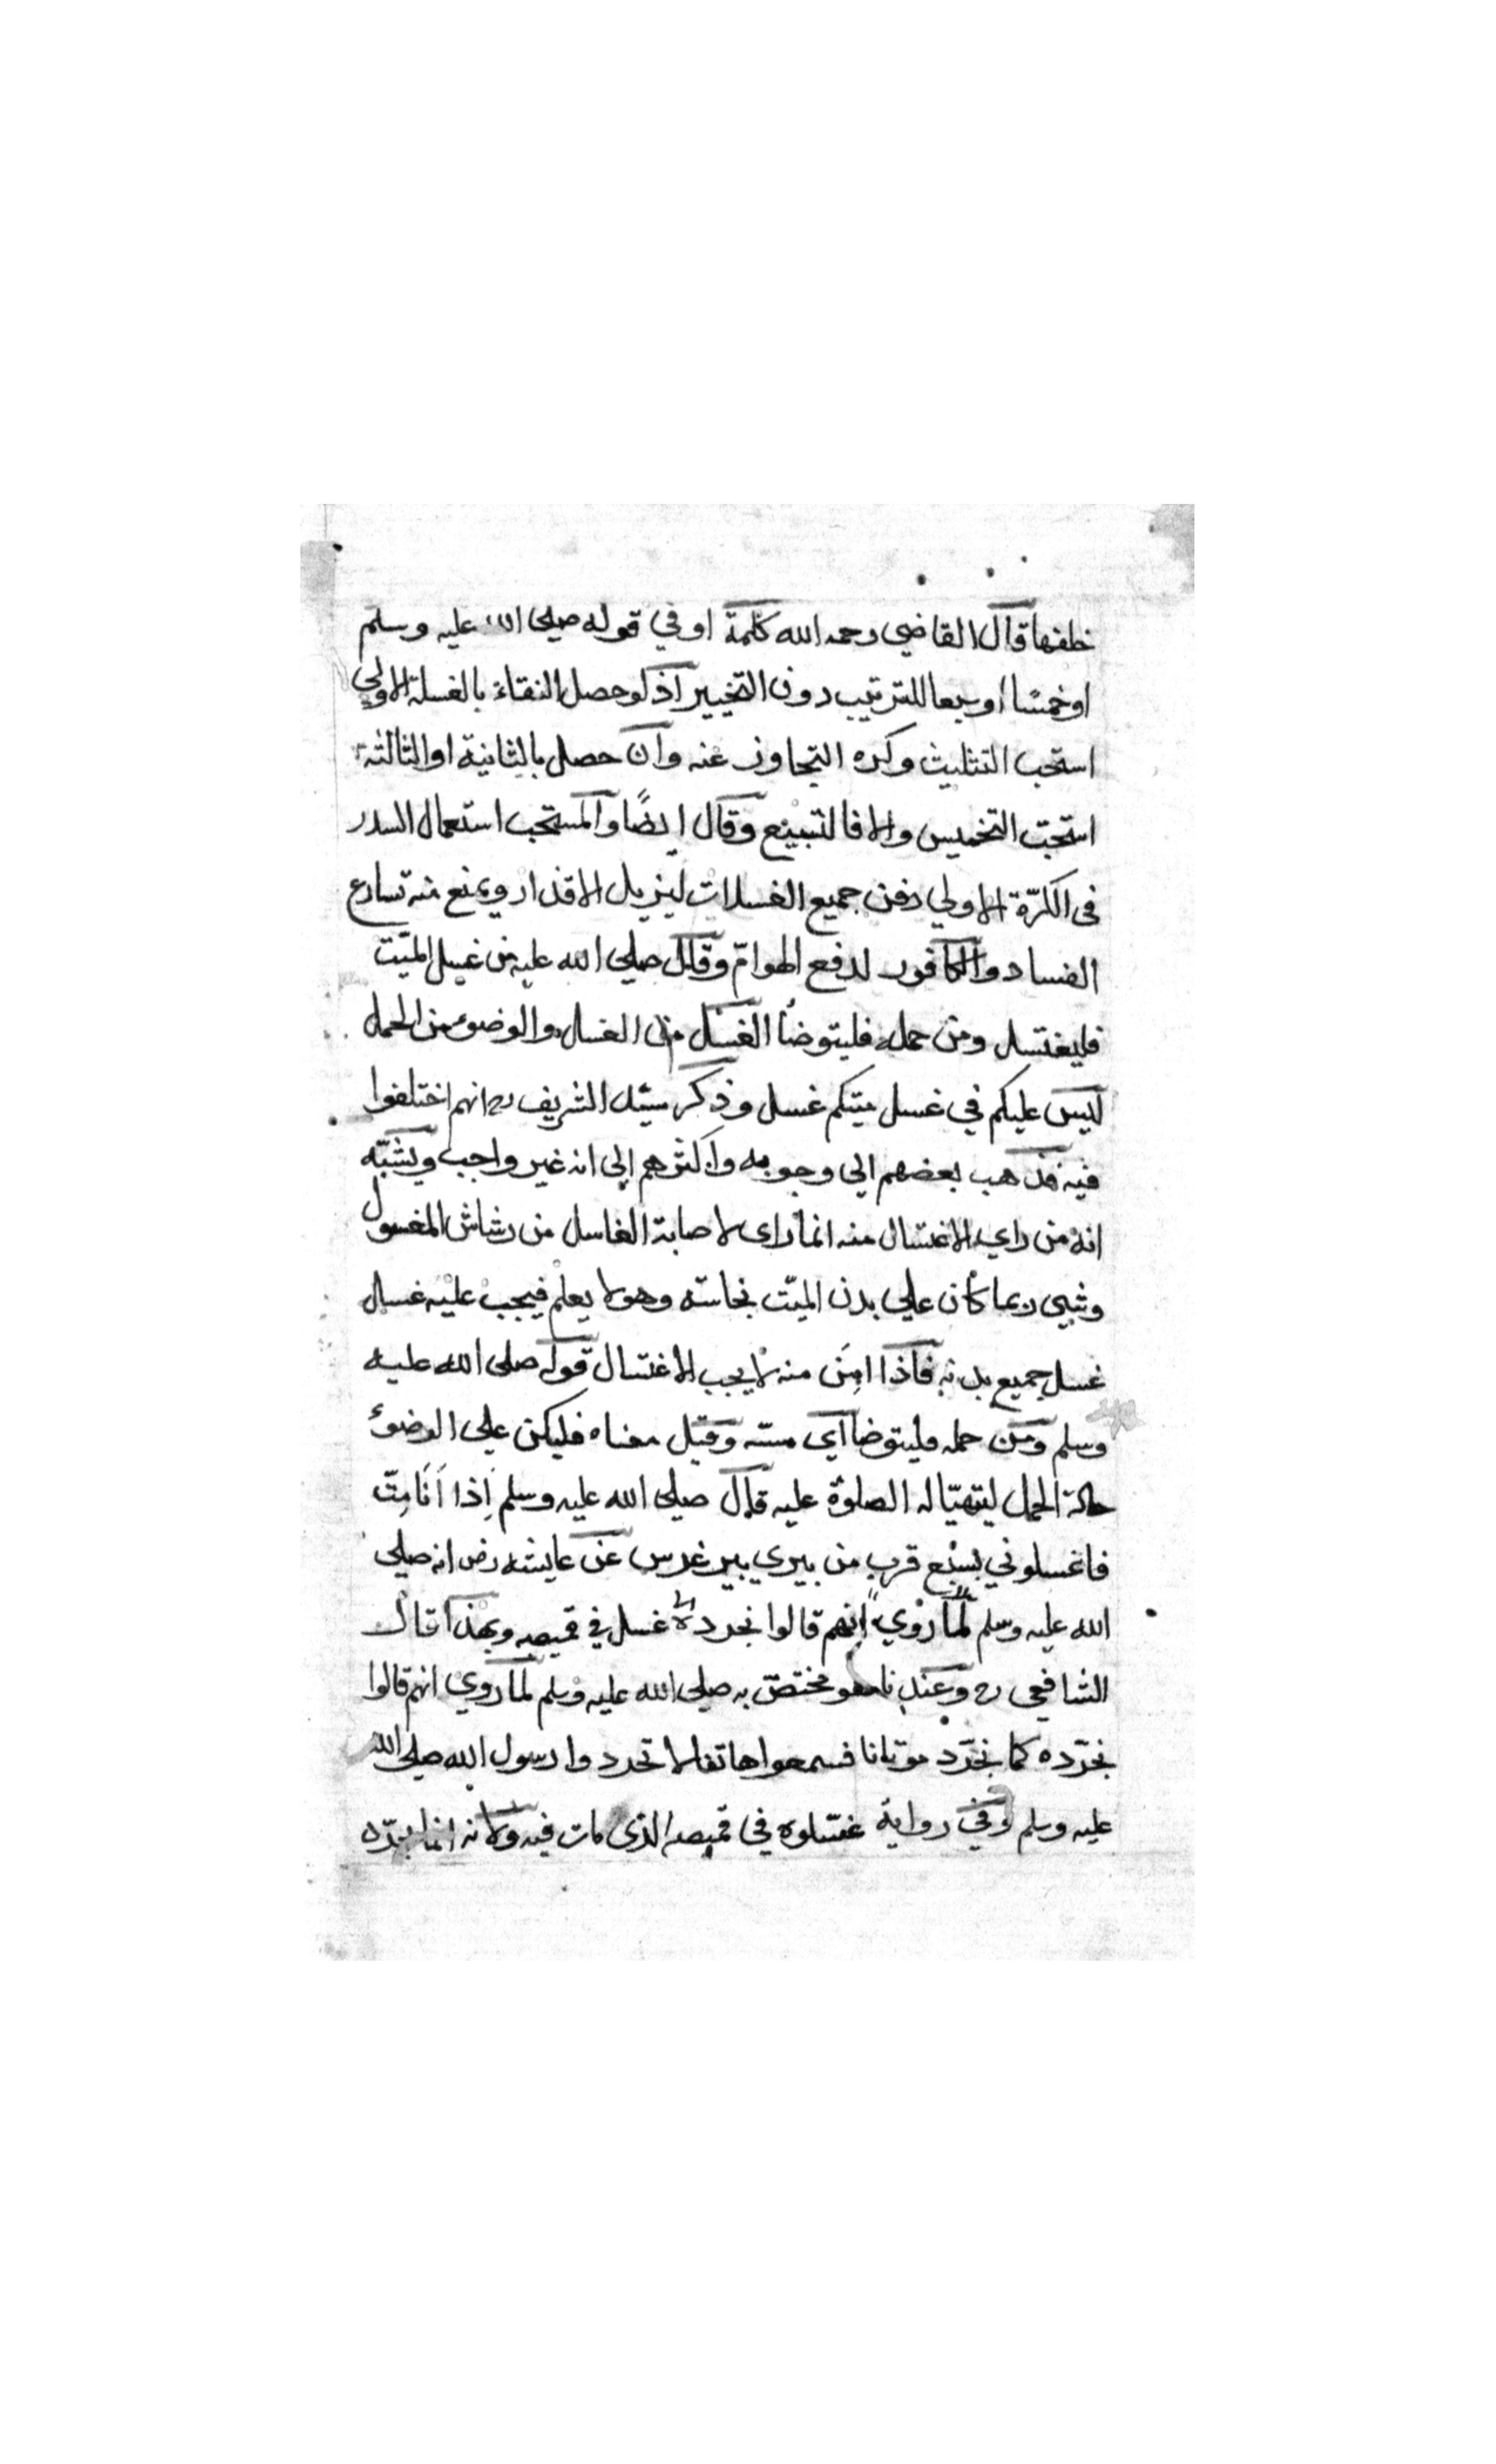 خلفها قال القاضي رحمه الله كلمة او في قوله صلى الله عليه وسلم
او خمسا او سبعا للترتيب دون التخيير اذ لو حصل النقاء بالغسلة الاولي
استحب التثليث وكره التجاوز عنه وان حصل بالثانية او الثالثة
استحبّ التخميس والا فالتسبيع وقال ايضًا والمستحب استعمال السدر
في الكرّة الاولي دون جميع الغسلات ليزيل الاقذار ويمنع منه تسارع
الفساد والكافور لدفع الهوامّ وقال صلى الله عليه من غسل الميّت
فليغتسل ومن حمله فليتوضأ الغسل من الغسل والوضوء من الحمل
ليس عليكم في غسل ميتكم غسل وذكر سيّد الشريف رح انهم اختلفوا
فيه فذهب بعضهم الي وجوبه واكثرهم الي انه غير واجب ويشبّه
انه من راي الاغتسال منه انما راي لاصابة الغاسل من رشاش المغسول
وشيء ربما كان علي بدن الميّت نجاسة وهو لا يعلم فيجب عليه غسل
غسل جميع بدنه فاذا امِن منه لا يجب الاغتسال قوله صلى الله عليه
وسلم ومن حمله فليتوضا اي مسّه وقيل معناه فليكن علي الوضوء
حالة الحمل ليتهيّا له الصلوة عليه قال صلى الله عليه وسلم إذا أنا مِتّ
فاغسلوني بسبع قرب من بيري بير غرس عن عايشة رض انه صلى
الله عليه وسلم لما روي انهم قالوا نجرد غسل في قميصه وبهذا قال
الشافعي رح وعندنا هو مختصّ به صلى الله عليه وسلم لما روي انهم قالوا
نجرّده كما نجرّد موتانا فسمعوا هاتفا لا تجردوا رسول الله صلى الله
عليه وسلم وفي رواية غسّلوه في قميصه الذي مات فيه ولانه انما